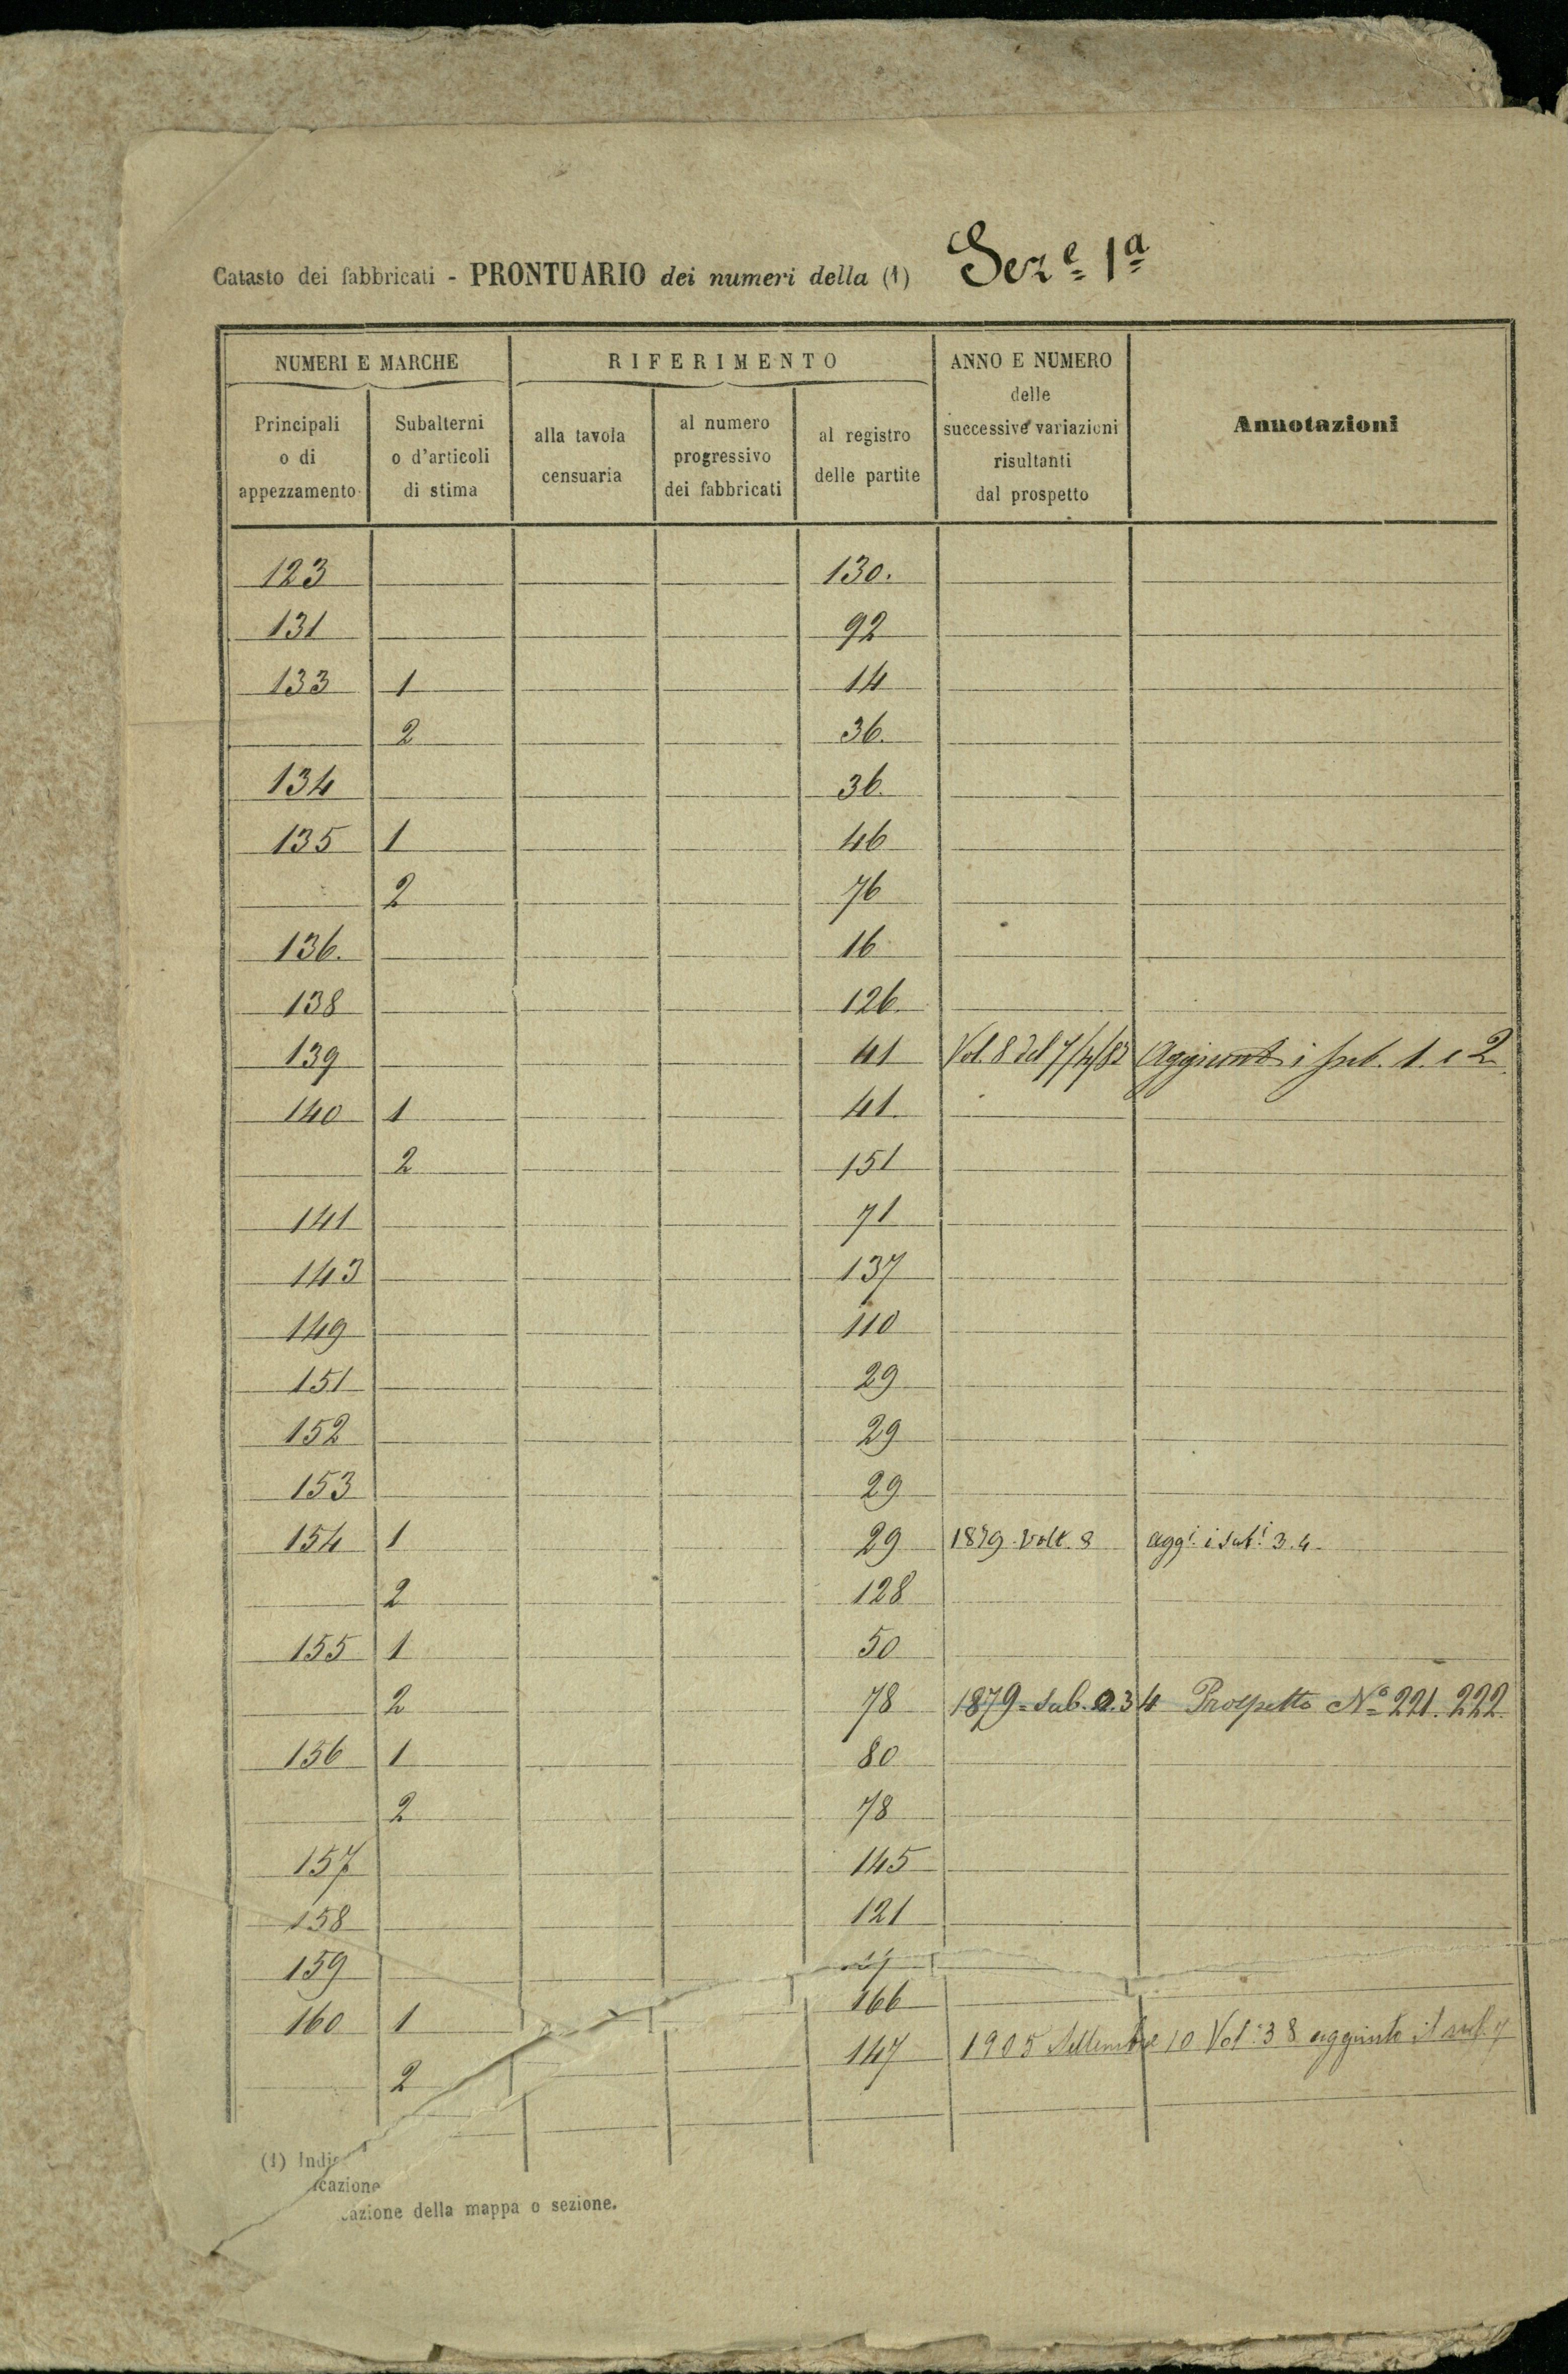 Catasto dei fabbricati - PRONTUARIO dei numeri della (1) Sez.e 1a
NUMERI E MARCHE
RIFERIMENTO
ANNO E NUMERO
delle
successive variazioni
risultanti
dal prospetto
Annotazioni
Principali
o di
appezzamento
Subalterni
o d'articoli
di stima
alla tavola
censuaria
al numero
progressivo
dei fabbricati
al registro
delle partite
123 130.
131 92
133 1 14
2 36.
134 36.
135 1 46
2 76
136. 16
138 126.
139 41 Vol. 8 del 7/4/83 Aggiunti i sub. 1. e 2
140 1 41.
2 151
141 71
143 137
149 110
151 29
152 29
153 29
154 1 29 1879 Volt. 8 aggi. i subi. 3.4
2 128
155 1 50
2 78 1879 = sub. 2.3 4 Prospetto No 221. 222.
156 1 80
2 78
157 145
158 121
159
160 1 166
2 147 1905 Settembre 10 Vol. 38 aggiunto il sub.
(1) Indi
icazione
cazione della mappa o sezione.